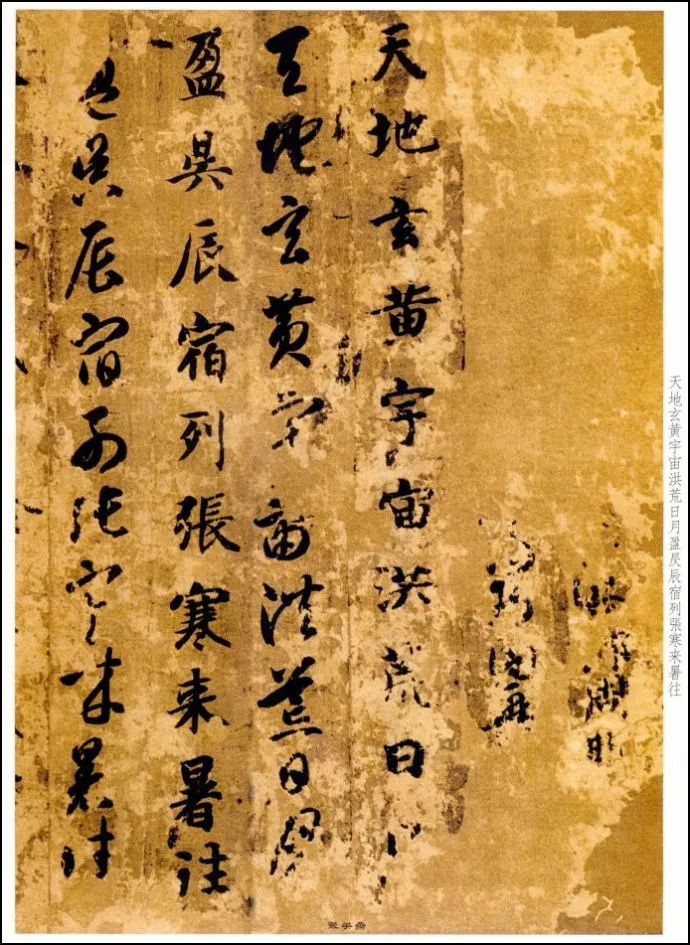 天地玄黃宇宙洪荒日月盈昃辰宿列張寒来暑往
天地玄黄宇宙洪荒日月
天地玄黄宇宙洪荒日月
盈昃辰宿列張寒来暑往
盈昃辰宿列張寒来暑往